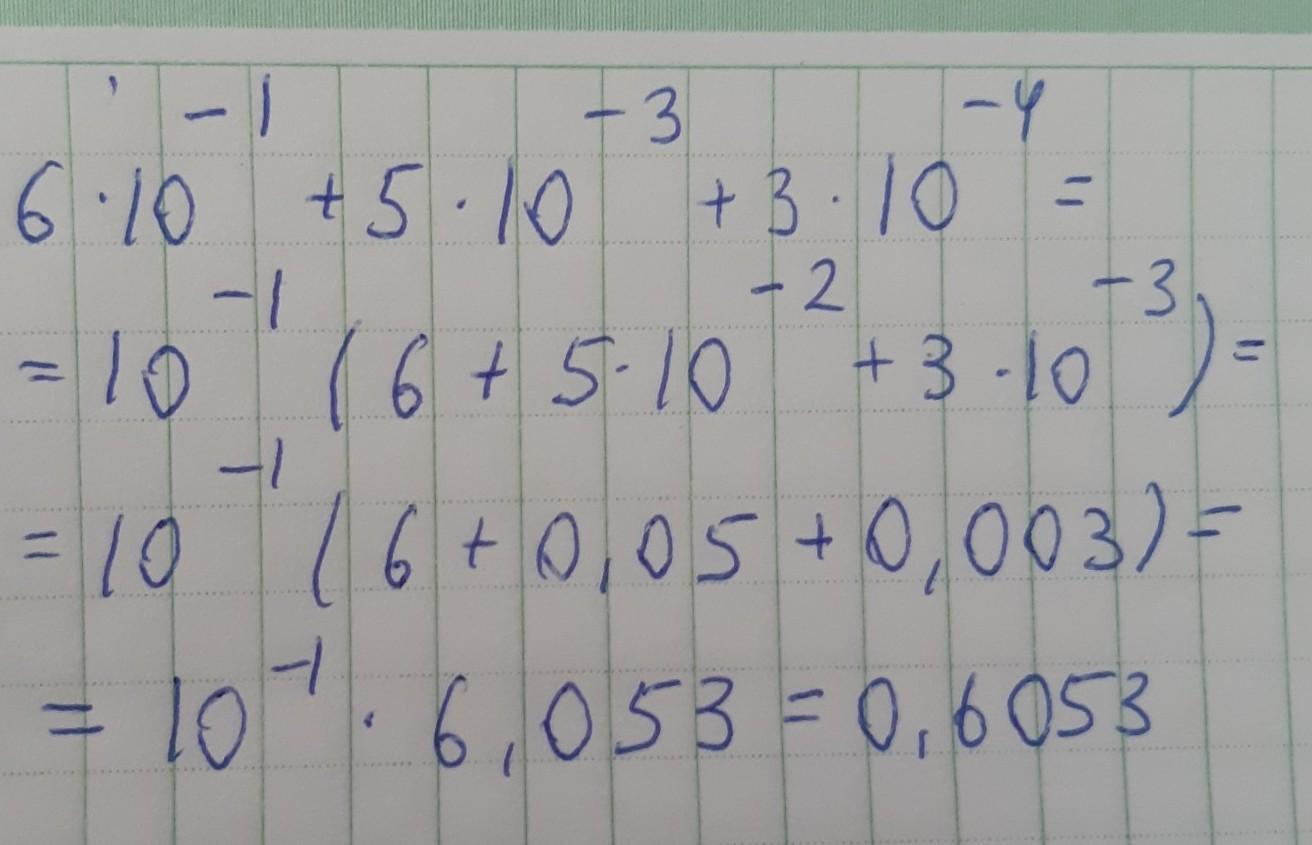 6 · 10⁻¹ + 5 · 10⁻³ + 3 · 10⁻⁴ =
= 10⁻¹ ( 6 + 5 · 10⁻² + 3 · 10⁻³ ) =
= 10⁻¹ ( 6 + 0,05 + 0,003 ) =
= 10⁻¹ · 6,053 = 0,6053